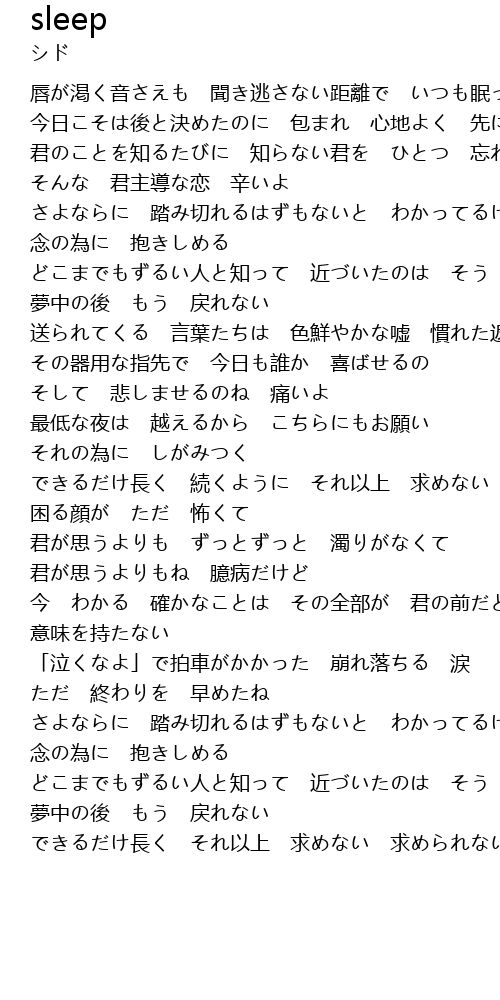 sleep
シド
唇が渇く音さえも　聞き逃さない距離で　いつも眠っ
今日こそは後と決めたのに　包まれ　心地よく　先に
君のことを知るたびに　知らない君を　ひとつ　忘れ
そんな　君主導な恋　辛いよ
さよならに　踏み切れるはずもないと　わかってるけ
念の為に　抱きしめる
どこまでもずるい人と知って　近づいたのは　そう
夢中の後　もう　戻れない
送られてくる　言葉たちは　色鮮やかな嘘　慣れた返
その器用な指先で　今日も誰か　喜ばせるの
そして　悲しませるのね　痛いよ
最低な夜は　越えるから　こちらにもお願い
それの為に　しがみつく
できるだけ長く　続くように　それ以上　求めない
困る顔が　ただ　怖くて
君が思うよりも　ずっとずっと　濁りがなくて
君が思うよりもね　臆病だけど
今　わかる　確かなことは　その全部が　君の前だと
意味を持たない
「泣くなよ」で拍車がかかった　崩れ落ちる　涙
ただ　終わりを　早めたね
さよならに　踏み切れるはずもないと　わかってるけ
念の為に　抱きしめる
どこまでもずるい人と知って　近づいたのは　そう
夢中の後　もう　戻れない
できるだけ長く　それ以上　求めない　求められない